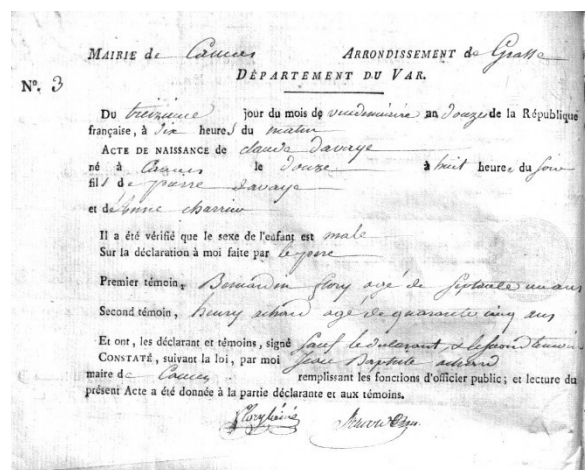 MAIRIE de Cannes ARRONDISSEMENT de Grasse
DÉPARTEMENT DU VAR.
N°. 3
Du treizieme jour du mois de vendemiaire an douze de la République
française, à dix heures du matin
ACTE DE NAISSANCE de claude davaye
né à Cannes le douze à huit heures du soir
fils de pierre davaye
et de Anne
Il a été vérifié que le sexe de l'enfant est male
Sur la déclaration à moi faite par le pere
Premier témoin, agé de septante un ans
Second témoin, henry agé de quarante cinq ans
Et ont, les déclarant et témoins, signé sauf le declarant & le second temoin
CONSTATÉ, suivant la loi, par moi Jean Baptiste
maire de Cannes remplissant les fonctions d'officier public; et lecture du
présent Acte a été donnée à la partie déclarante et aux témoins.